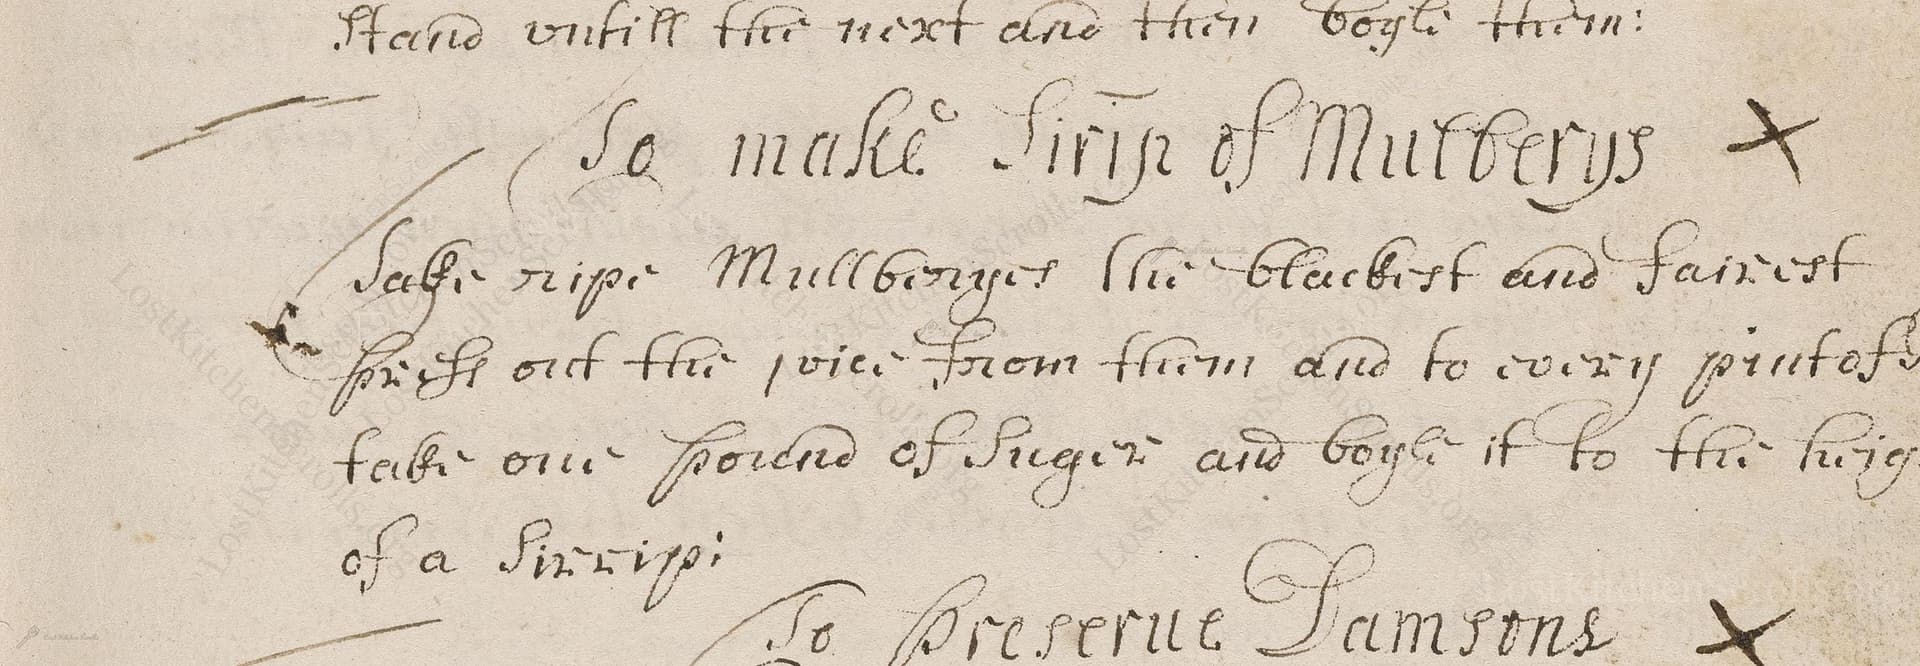 stand vntill the next and then boyle them:
To make Sirip of Mulberys
Take ripe Mullberyes the blackest and fairest
press out the joice from them and to every pint of
take one pound of Suger and boyle it to the heig
of a Sirrip:
To preserue Damsons